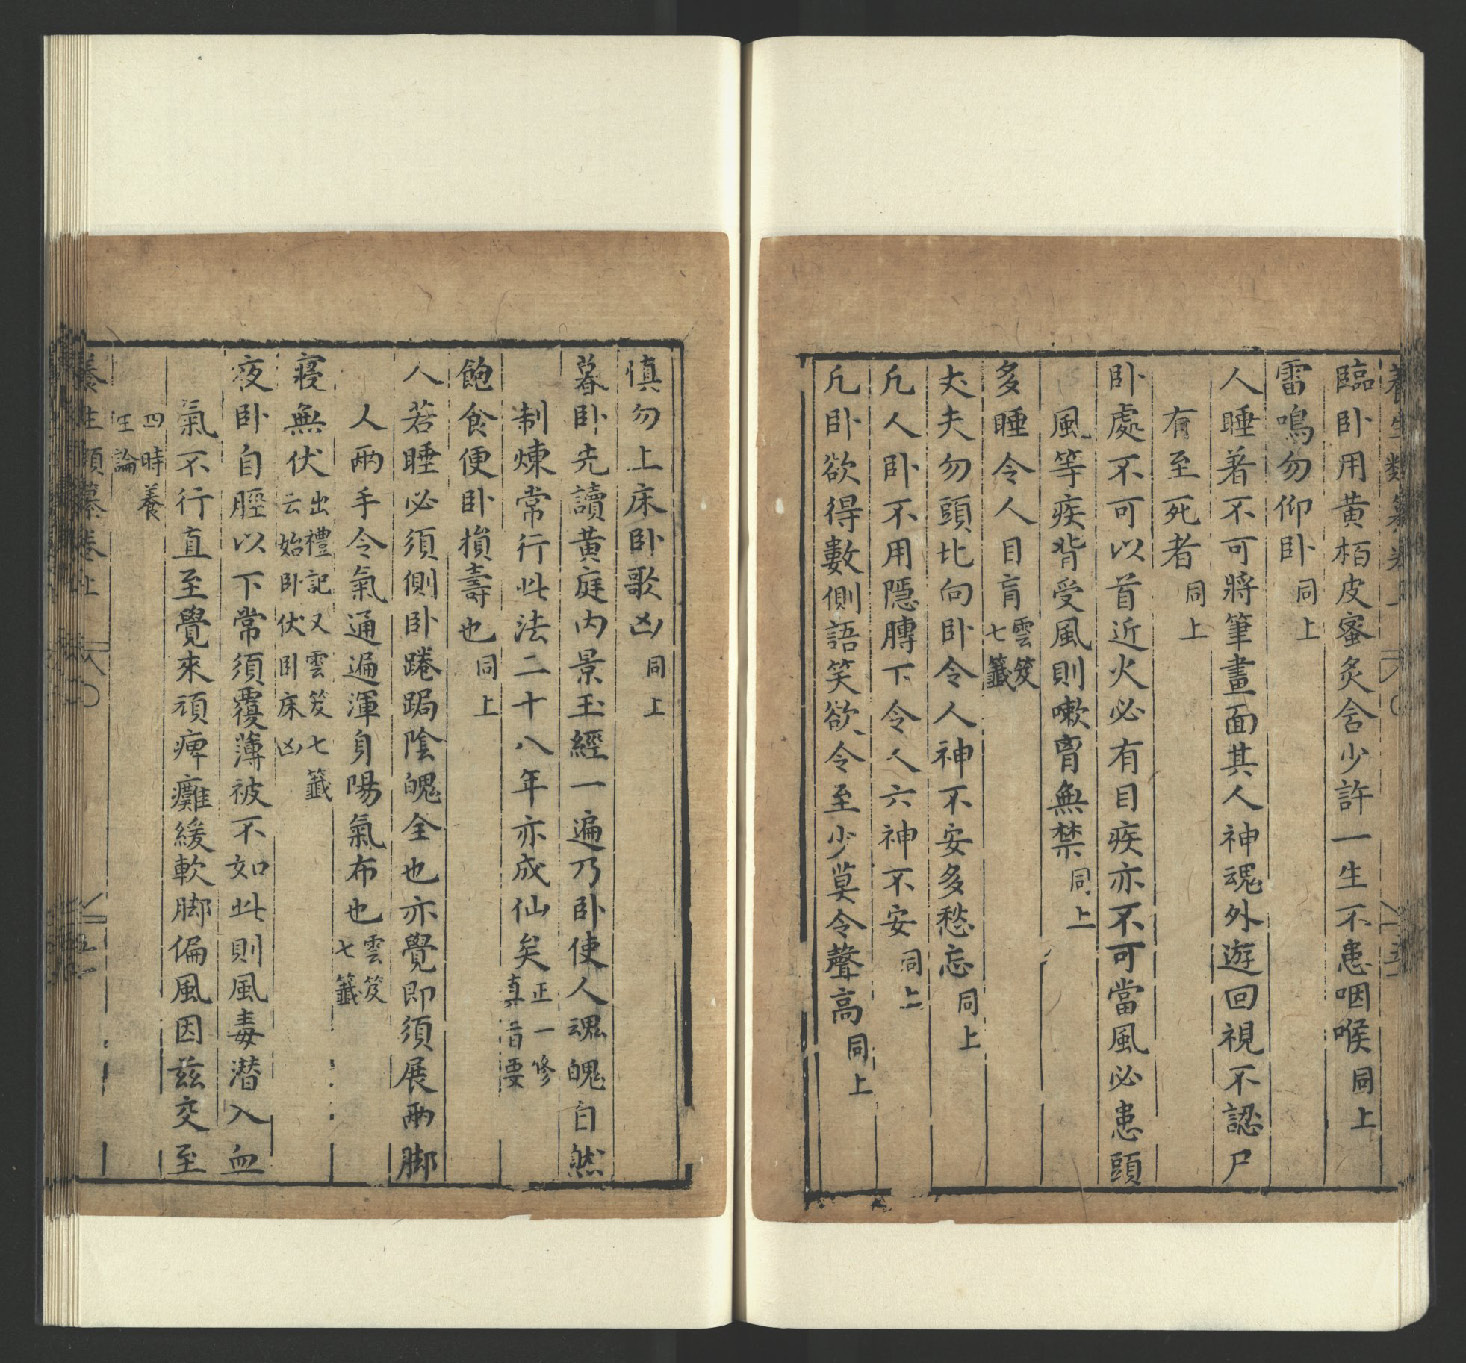 養生類纂卷上
臨卧用黄栢皮蜜炙含少許一生不患咽喉同上
雷鳴勿仰卧同上
人睡着不可將筆畫面其人神魂外遊回視不認尸
有至死者同上
卧處不可以首近火必有目疾亦不可當風必患頭
風等疾背受風則嗽肓無禁同上
多睡令人目肓雲笈七籤
大夫勿頭北向卧令人神不安多愁忘同上
凡人卧不用隱膊下令人六神不安同上
凡卧欲得數側語笑欲令至少莫令聲高同上
慎勿上床卧歌凶同上
暮卧先讀黄庭内景玉經一遍乃卧使人魂魄自然
制煉常行此法二十八年亦成仙矣正一修真旨要
飽食便卧損壽也同上
人若睡必須側卧踡跼陰魄全也亦覺即須展兩脚
人兩手令氣通遍渾身陽氣布也雲笈七籤
寝無伏出禮記又雲笈七籤云始卧伏卧床凶
夜卧自脛以下常須覆薄被不如此則風毒潜入血
氣不行直至覺來頑痺癱緩軟脚偏風因兹交至
四時養生論
養生類纂卷上